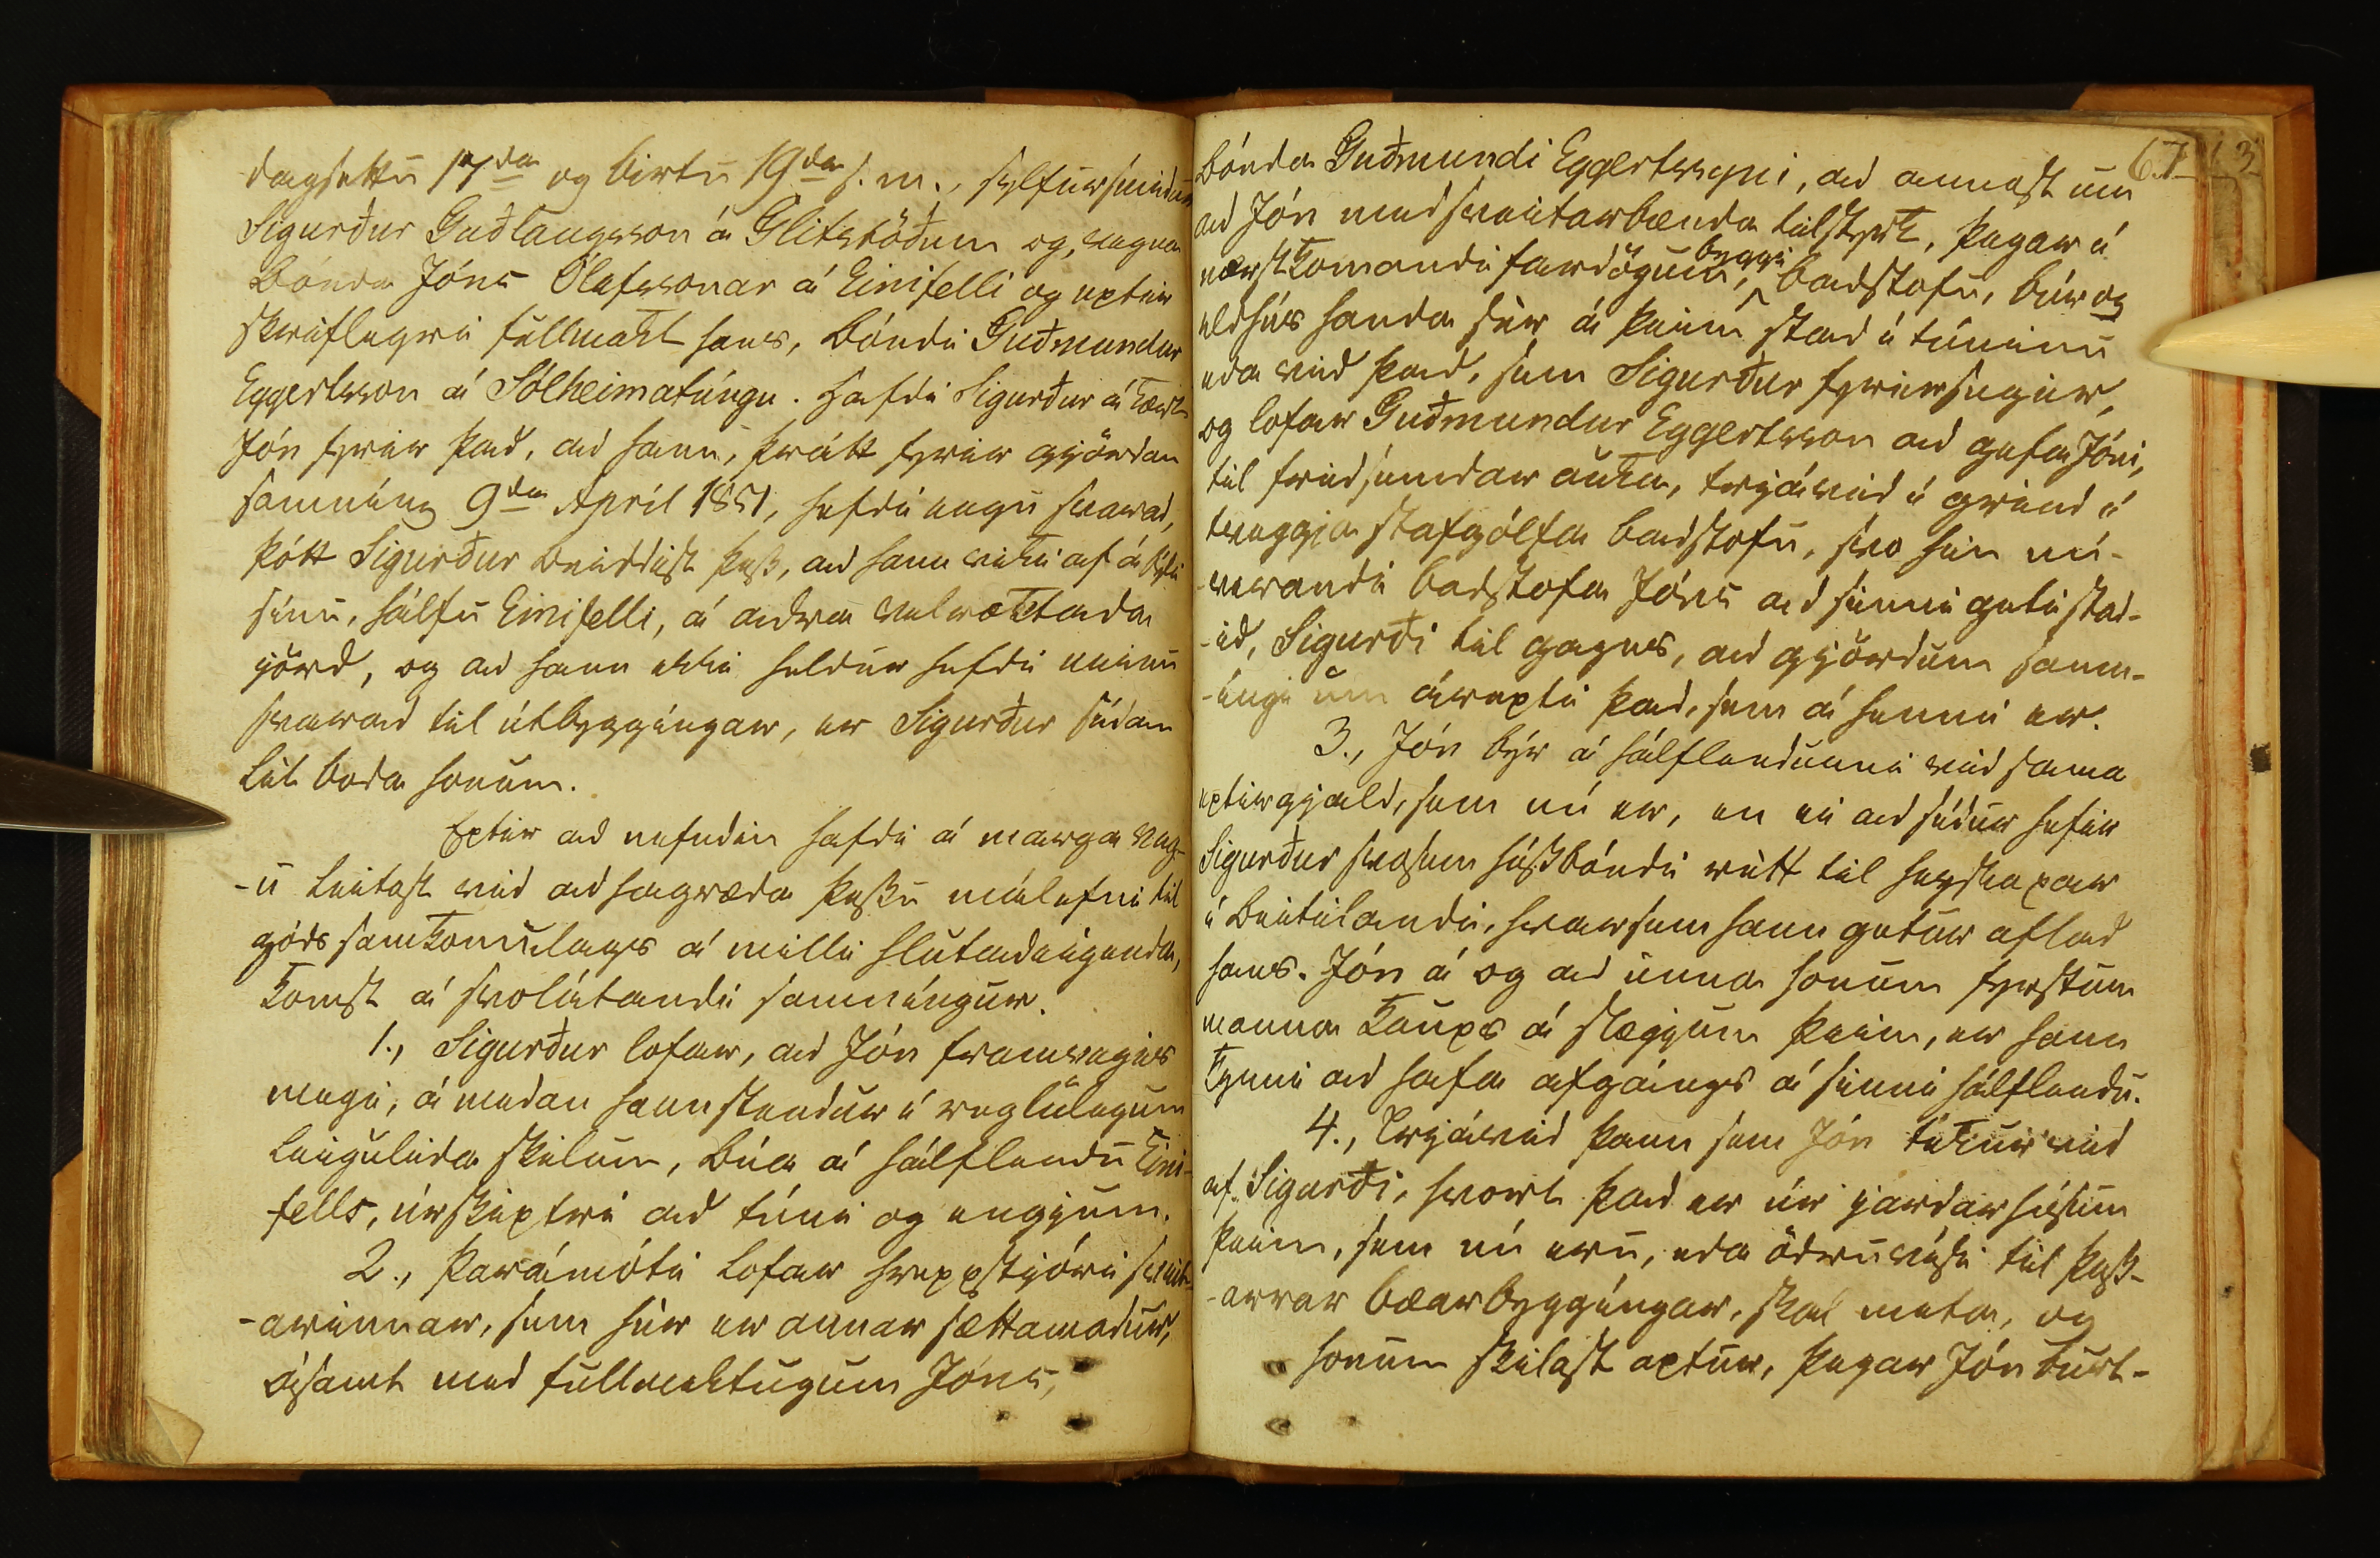 dagsettu 17da og birtu 19da s. m., sylfursmidur
Sigurður Guðlaugsson á Glitstöðum og, vegna
bónda Jóns Ólafssonar á Einifelli og eptir
skriflegri fullmakt hans, bóndi Guðmundur
Eggertsson á Sólheimatúngu. Hafdi Sigurður ákært
Jón fyrir það, ad hann, þrátt fyrir gjördan
samníng 9da April 1851, hefdi engu svarad,
þótt Sigurður beiddist þess, ad hann viki af ábýli
sínu, hálfu Einifelli, á adra velræktada
jörd, og ad hann ekki heldur hefdi neinu
svarad til útbyggíngar, er Sigurður sídan
lét boda honum.
Eptir ad nefndin hafdi á marga veg-
-u leitast vid ad hagræda þessu málefni til
góds samkomulags á milli hlutadeigenda,
komst á svolátandi samníngur.
1., Sigurður lofar, ad Jón framvegis
megi, á medan hann stendur í reglulegum
leiguleida skilum, búa á hálflendu Eini-
fells, úrskiptri ad túni og engjum.
2., Þarámóti lofar hreppstjóri sveit-
-arinnar, sem hér er annar sættamadur,
ásamt med fullmektugum Jóns,
67
3
bónda Guðmundi Eggertssyni, ad annast um
ad Jón med sveitarbænda tilstyrk, þegar í
næstkomandi fardögum, byggi badstofu, búr og
eldhús handa sér á þeim stad í túninu
eda vid það, sem Sigurður fyrirsegir,
og lofar Guðmundur Eggertsson ad gefa Jóni,
til fridsemdar auka, trjávid í grind í
tveggja stafgólfa badstofu, svo hin nú-
-verandi badstofa Jóns ad sinni geti stad-
-id, Sigurði til gagns, ad gjördum samn-
-íngi um árepti það, sem á henni er.
3., Jón býr á hálflendunni vid sama
eptirgjald, sem nú er, en ei ad sídur hefir
Sigurður svosem húsbóndi rétt til heyskapar
í beitilandi, hvar sem hann getur aflad
hans. Jón á og ad unna honum fyrstum
manna kaups á slægjum þeim, er hann
kynni ad hafa afgángs á sinni hálflendu.
4., Trjávid þann sem Jón tekur vid
af Sigurði, hvort það er úr jardarhúsum
þeim, sem nú eru, eda ödruvísi til þess-
-arrar bæarbyggíngar, skal meta, og
honum skilast aptur, þegar Jón burt-